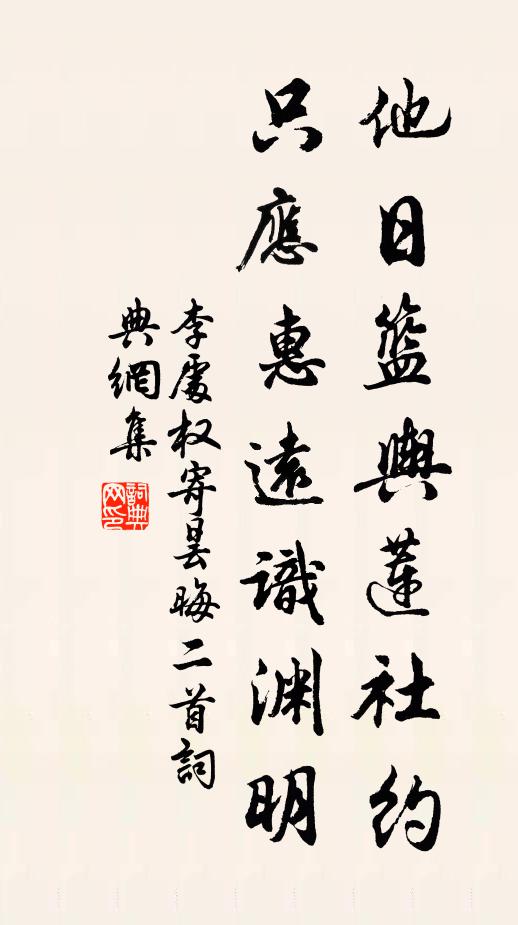 他日籃輿蓮社約
只應惠遠識淵明
李處权寄曇晦二首詞
典網集
詞典
网印